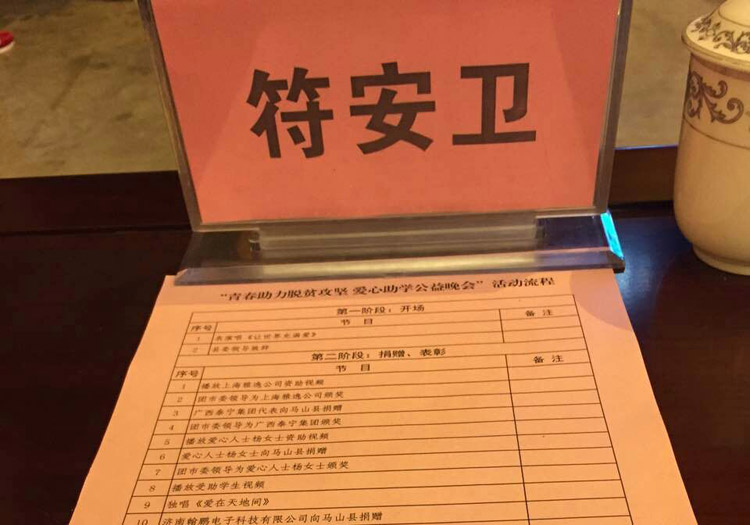 符安卫
“青春助力脱贫攻坚 爱心助学公益晚会”活动流程
第一阶段：开场
序号 节 目 备 注
1 表演唱《让世界充满爱》
2 县委领导致辞
第二阶段：捐赠、表彰
序号 节 目 备 注
1 播放上海雅逸公司资助视频
2 团市委领导为上海雅逸公司颁奖
3 广西泰宁集团代表向马山县捐赠
4 团市委领导为广西泰宁集团颁奖
5 播放爱心人士杨女士资助视频
6 爱心人士杨女士向马山县捐赠
7 团市委领导为爱心人士杨女士颁奖
8 播放受助学生视频
9 独唱《爱在天地间》
10 济南翰鹏电子科技有限公司向马山县捐赠